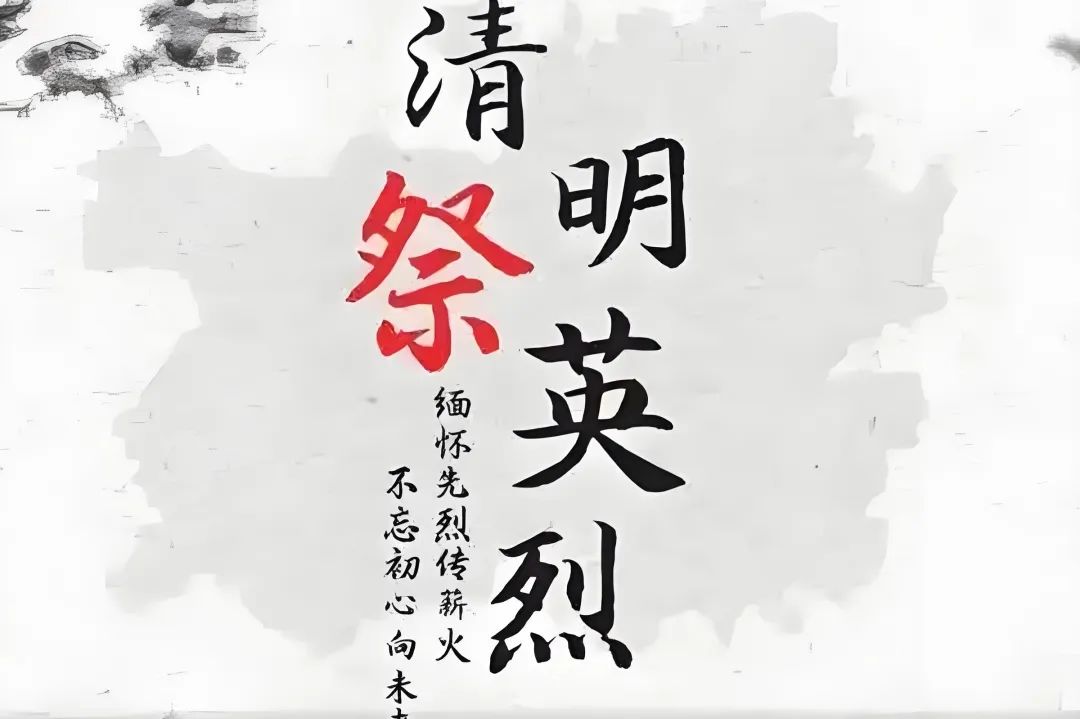 清明祭英烈
缅怀先烈传薪火
不忘初心向未